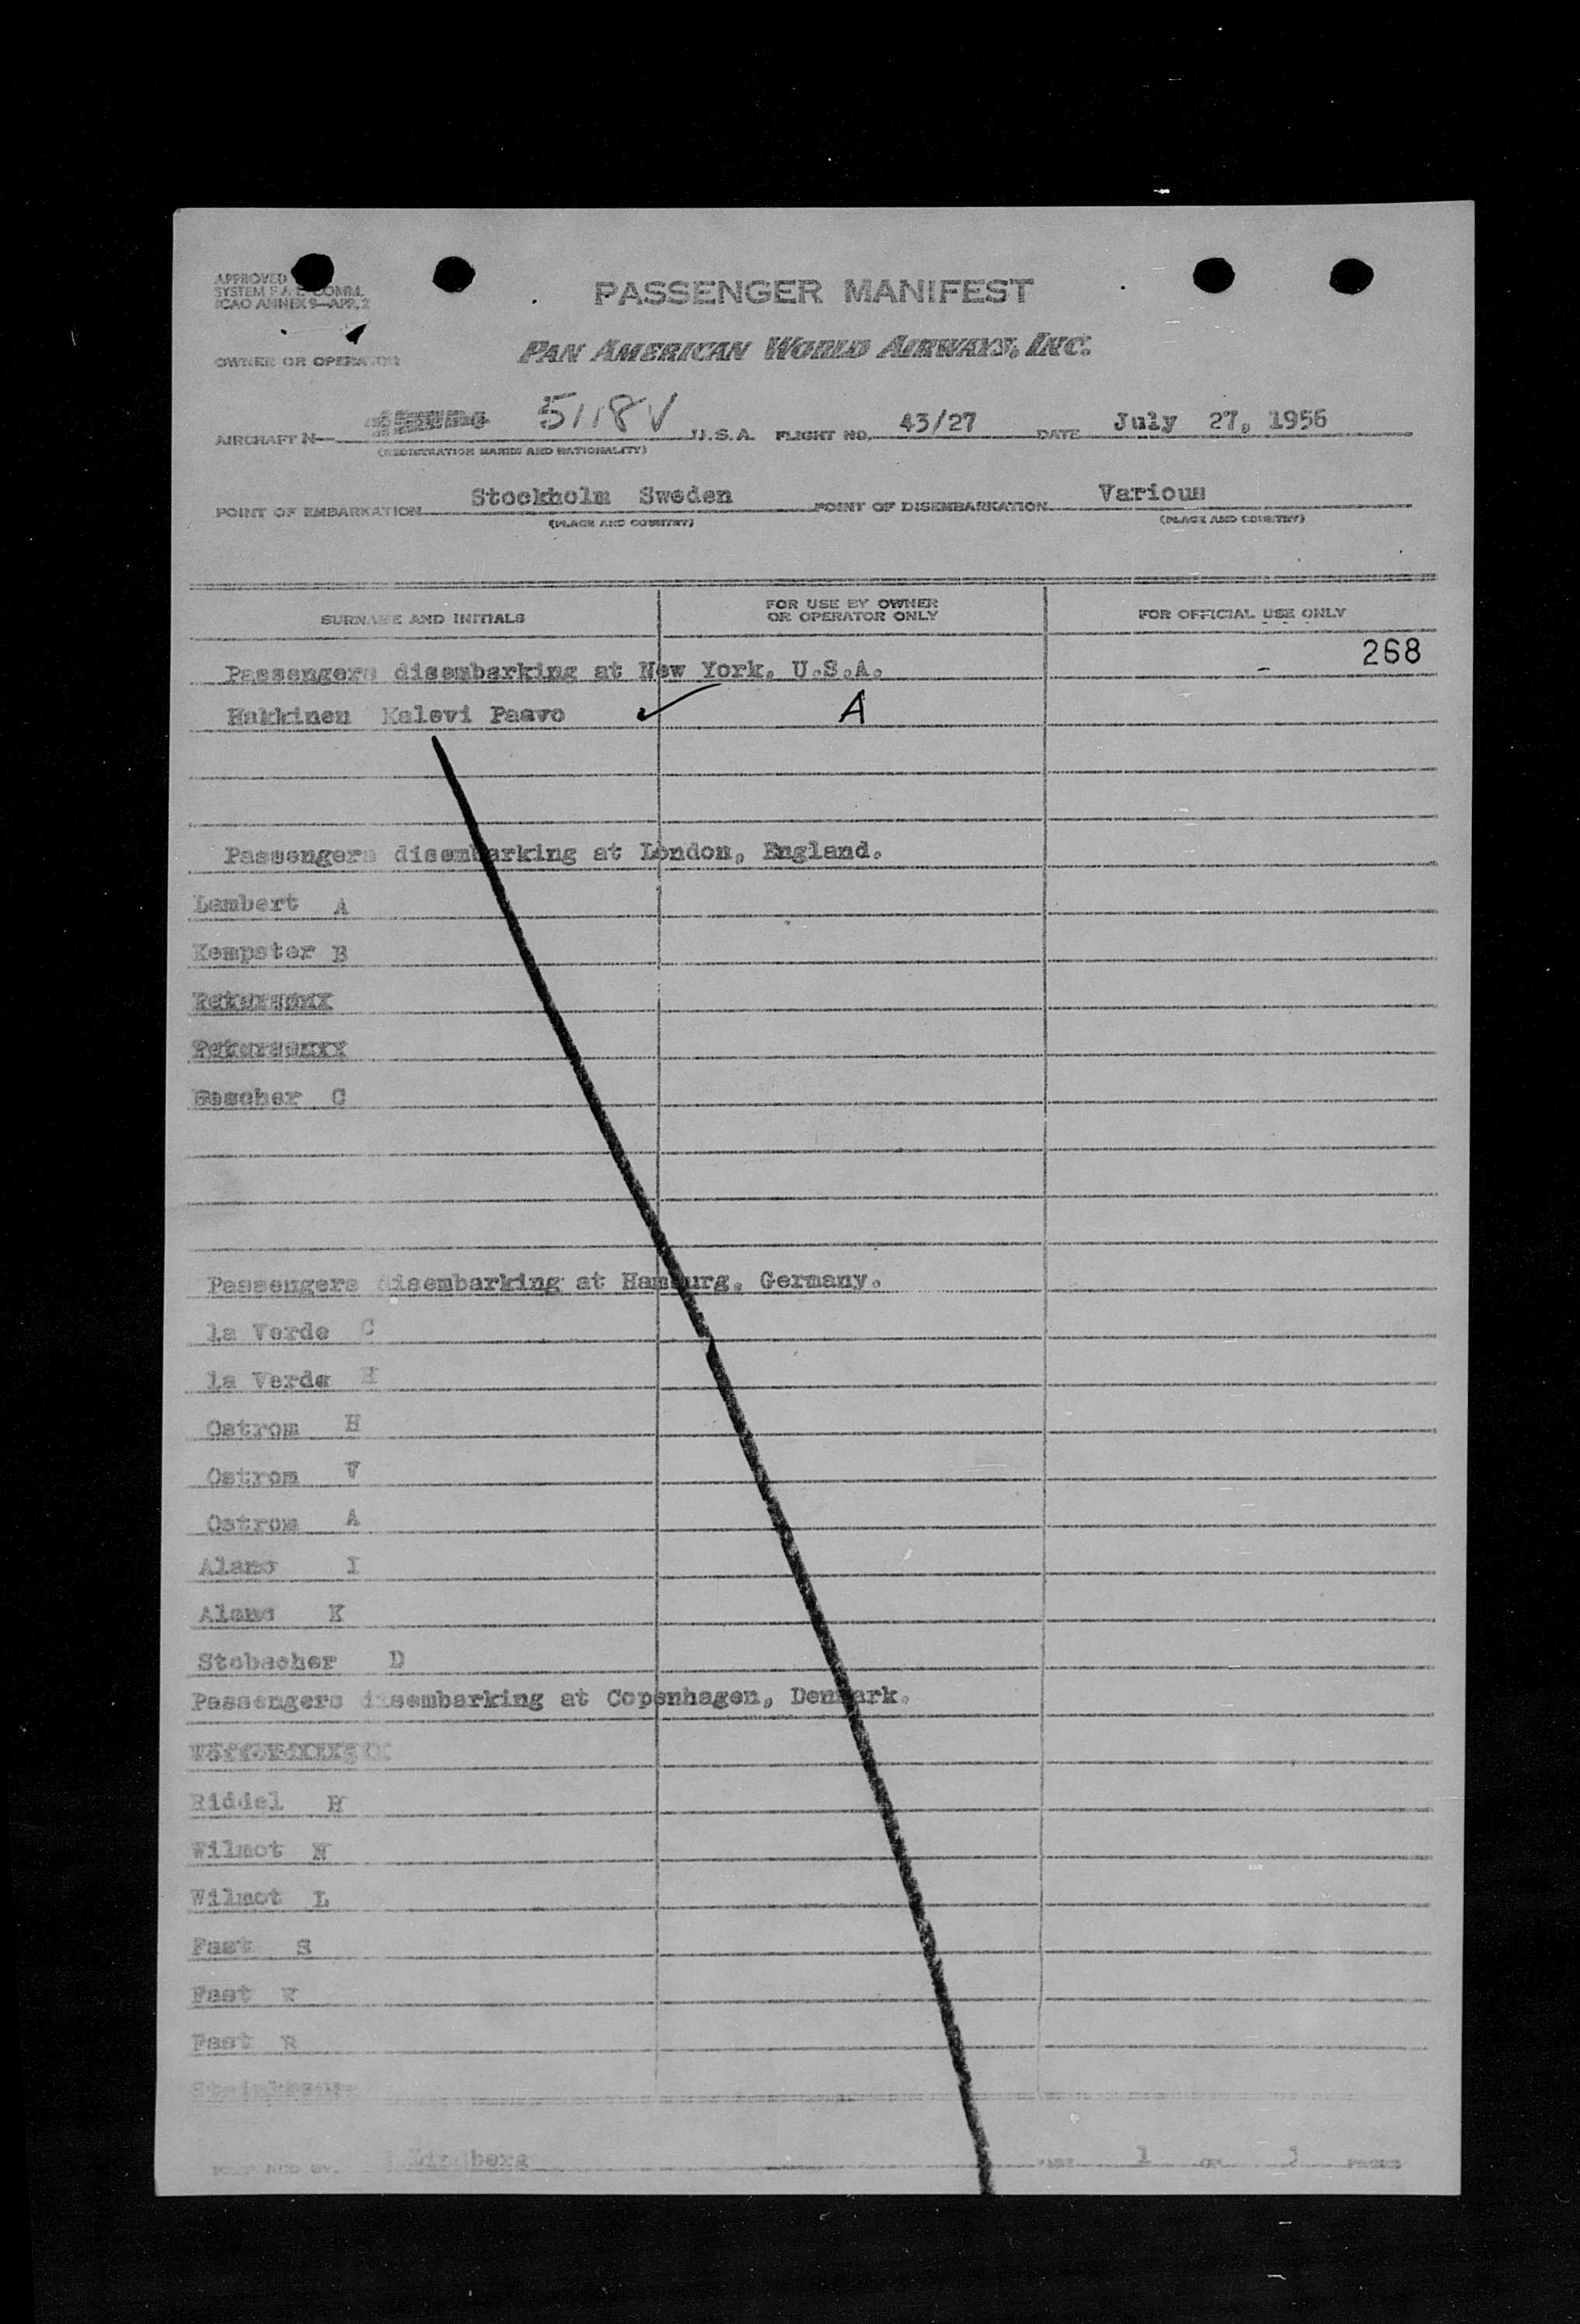 APPROVED
SYSTEM F.A.L. COMM.
ICAO ANNEX 9—APP. 2
PASSENGER MANIFEST
OWNER OR OPERATOR PAN AMERICAN WORLD AIRWAYS, INC.
AIRCRAFT N 5118V U.S.A. FLIGHT NO. 43/27 DATE July 27, 1956
(REGISTRATION MARKS AND NATIONALITY)
POINT OF EMBARKATION Stockholm Sweden POINT OF DISEMBARKATION Various
(PLACE AND COUNTRY) (PLACE AND COUNTRY)
SURNAME AND INITIALS FOR USE BY OWNER OR OPERATOR ONLY FOR OFFICIAL USE ONLY
268
Passengers disembarking at New York, U.S.A.
Hakkinen Kalevi Paavo ✓ A
Passengers disembarking at London, England.
Lambert A
Kempster B
Escher C
Passengers disembarking at Hamburg, Germany.
la Verde C
la Verde H
Ostrom H
Ostrom V
Ostrom A
Alano I
Alano K
Stobacher D
Passengers disembarking at Copenhagen, Denmark.
Riddel H
Wilmot N
Wilmot L
Fast S
Fast
Fast R
PREPARED BY Lindberg PAGE 1 OF PAGES